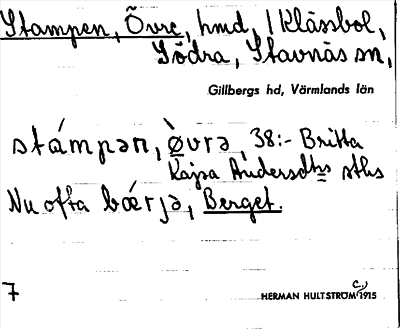 Stampen, Övre, hmd, 1 Klässbol,
Södra, Stavnäs sn,
Gillbergs hd, Värmlands län
stámpən, òvrə, 38:- Britta
Kajsa Andersdtrs sths
Nu ofta bǽrjə, Berget.
7
HERMAN HULTSTRÖM C.) 1915